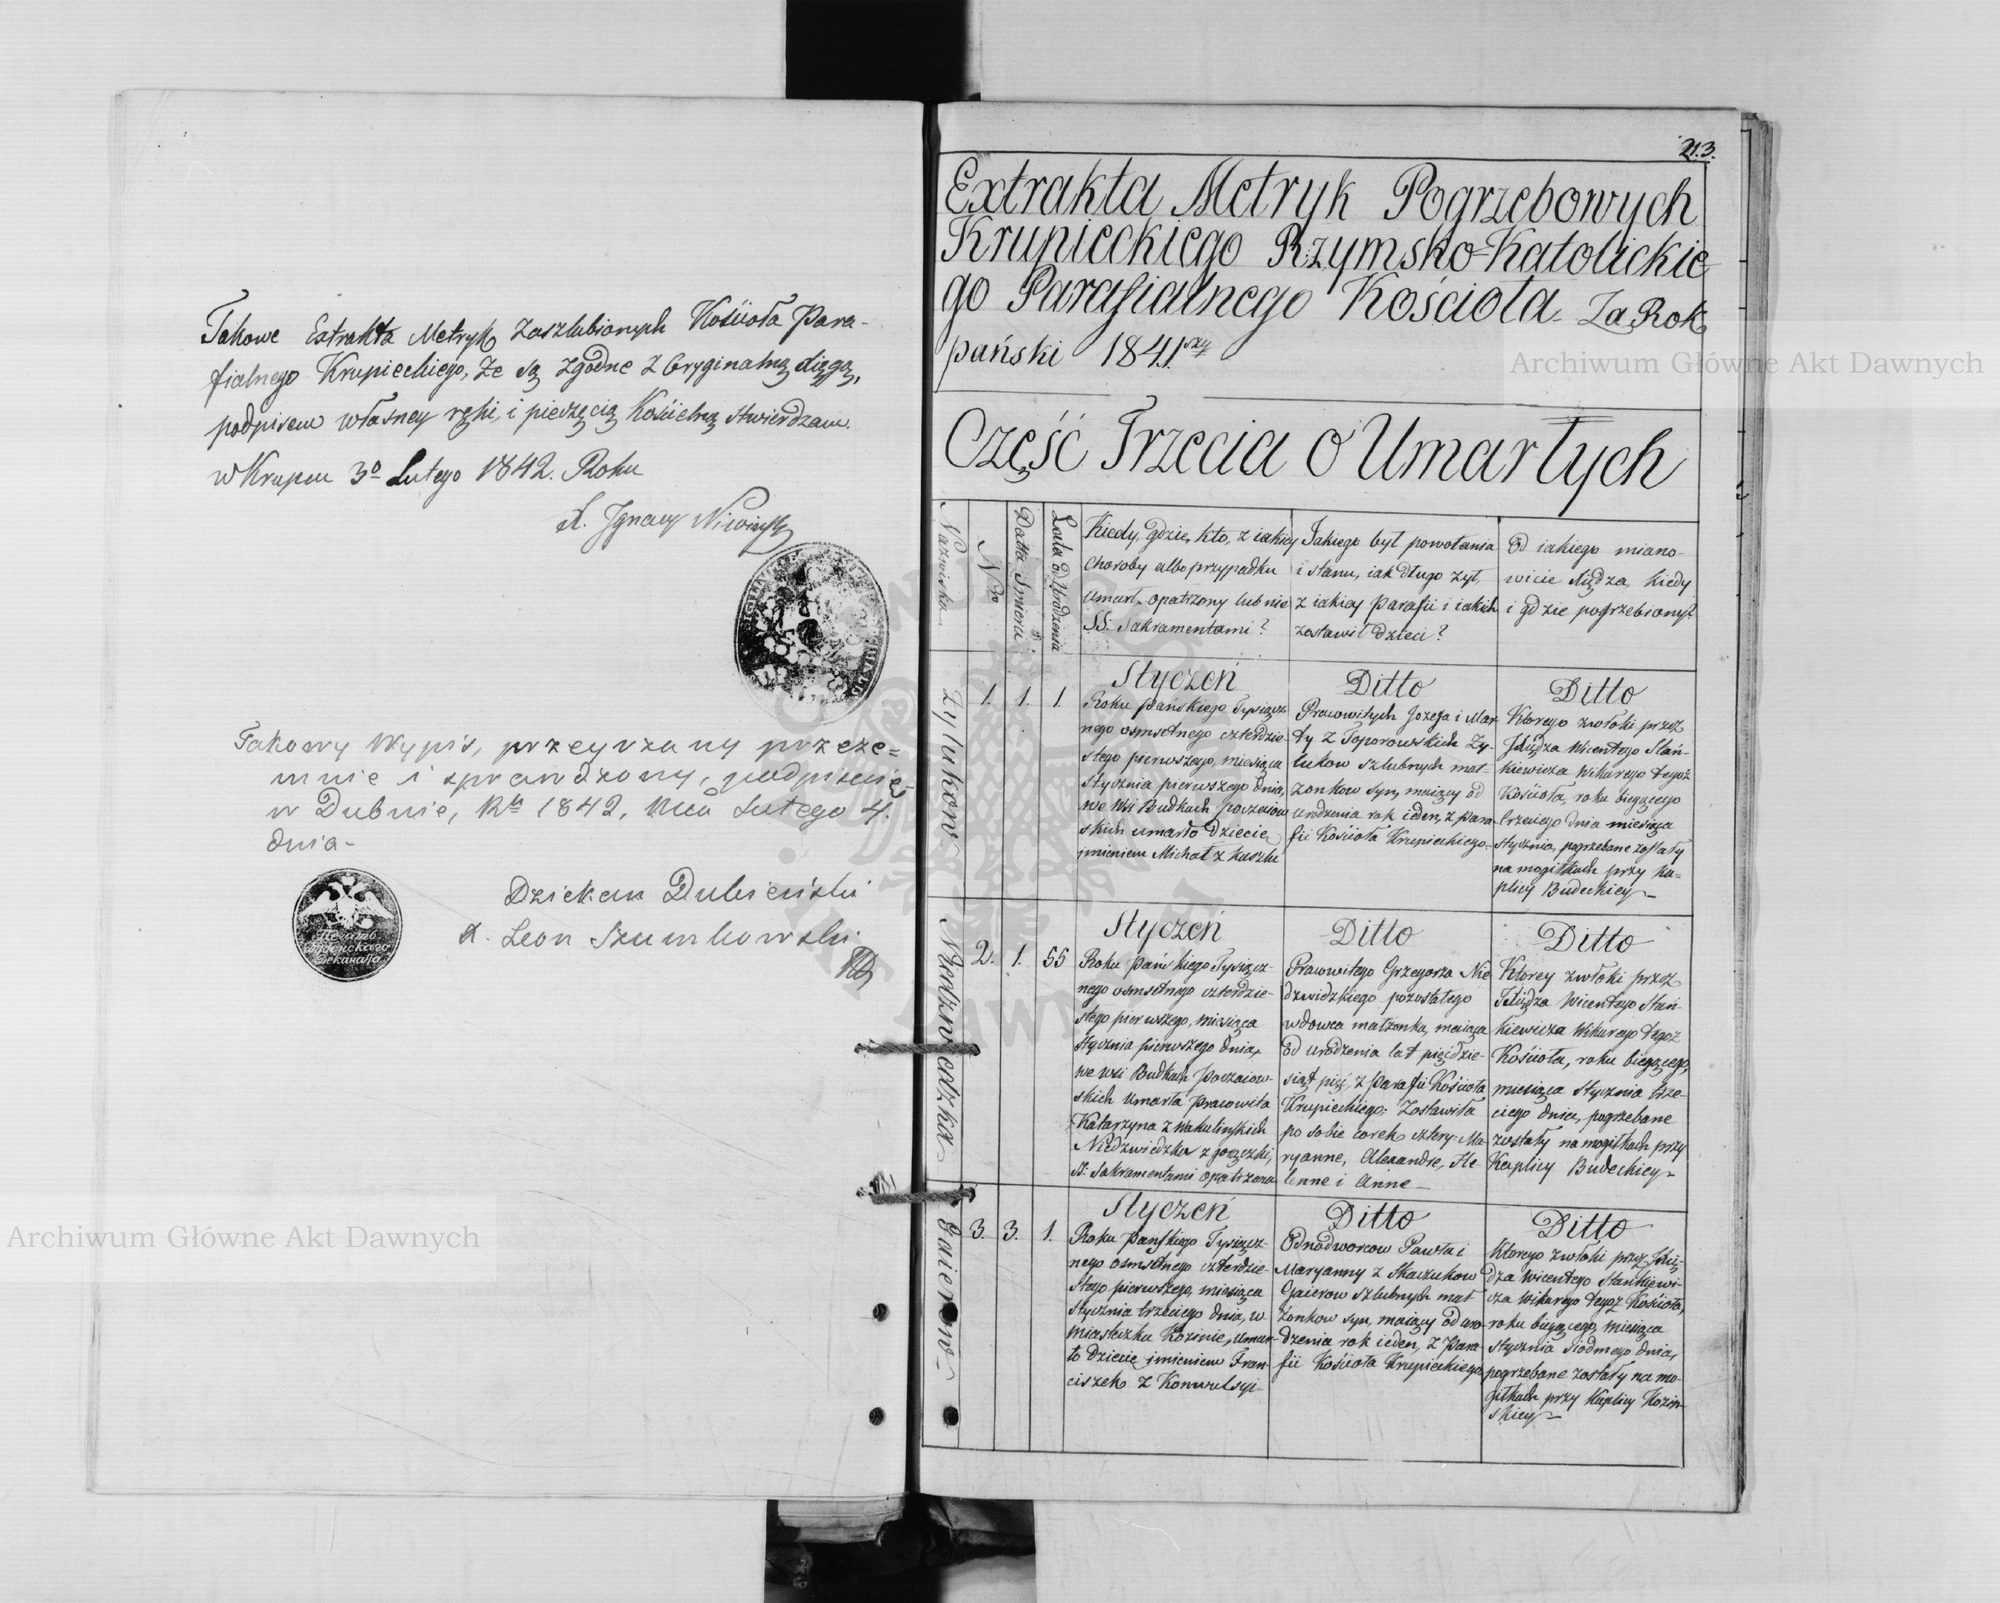 Takowe Extrakta Metryk Zaszlubionych Kościoła Para-
fialnego Krupieckiego, że są zgodne z Oryginalną xięgą,
podpisem własney ręki, i pieczęcią Kościelną stwierdzam.
w Krupcu 3º Lutego 1842. Roku
X. Ignacy
Takowy Wypis, przeyrzany przeze=
mnie i sprawdzony, podpisuię
w Dubnie, Rku 1842, Mca Lutego 4.
dnia-
Dziekan Dubieński
X. Leon Szumkowski
Печать
Дубенского
Деканата
213.
Extrakta Metryk Pogrzebowych
Krupieckiego Rzymsko-Katolickie
go Parafialnego Kościoła Za Rok
pański 1841szy
Część Trzecia o Umarłych
Nazwiska
Nro
Datta Smierci
Lata od Urodzenia
Kiedy, gdzie, kto, z iakiey
choroby albo przypadku
Umarł, opatrzony lub nie
SS: Sakramentami?
Jakiego był powołania
i stanu, iak długo żył,
z iakiey Parafii i iakich
zostawił dzieci?
Od iakiego miano-
wicie Xiędza, kiedy
i gdzie pogrzebiony?
Zylukow
1.
1.
1.
Styczeń
Roku Pańskiego Tysiącz
nego osmsetnego czterdzie-
stego pierwszego, miesiąca
Stycznia pierwszego dnia,
we Wsi Budkach poczaiow
skich umarło dziecie
jmieniem Michał z kaszlu
Ditto
Pracowitych Jozefa i Mar
ty z Toporowskich Zy-
lukow szlubnych mał-
żonkow syn, maiący od
urodzenia rok ieden, z para
fii Kościoła Krupieckiego-
Ditto
Ktorego zwłoki przez
Xiędza Wicentego Stań-
kiewicza Wikarego tegoż
Kościoła, roku biegącego
trzeciego dnia miesiąca
stycznia, pogrzebane zostały
na mogiłkach przy Ka-
plicy Budeckiey
Niedzwiedzka
2.
1.
55
Styczeń
Roku Pańskiego Tysiącz-
nego osmsetnego czterdzie-
stego pierwszego, miesiąca
Stycznia pierwszego dnia,
we wsi Budkach Poczaiow-
skich Umarła pracowita
Katarzyna z Wakulinskich
Niedzwiedzka z gorączki,
SS: Sakramentami opatrzona
Ditto
Pracowitego Grzegorza Nie
dzwidzkiego pozostałego
wdowca małżonka, maiąca
od urodzenia lat pięćdzie-
siąt pięć, z Parafii Kościoła
Krupieckiego; Zostawiła
po sobie corek cztery: Ma
ryanne, Alexandre, He-
lenne i Anne-
Ditto
Ktorey zwłoki przez
Xiędza Wicentego Stań-
kiewicza Wikarego tegoż
Kościoła, roku biegącego,
miesiąca Stycznia trze-
ciego dnia, pogrzebane
zostały na mogiłkach przy
Kaplicy Budeckiey
Gaierow
3.
3.
1.
Styczeń
Roku Pańskiego Tysiącz-
nego osmsetnego czterdzie
stego pierwszego, miesiąca
stycznia trzeciego dnia, w
miasteczku Kozinie, umar-
ło dziecię jmieniem Fran-
ciszek z Konwulsyi-
Ditto
Odnodworcow Pawła i
Maryanny z Skaczukow
Gaierow szlubnych mał
żonkow syn, maiący od uro-
dzenia rok ieden, z Para
fii Kościoła Krupieckiego
Ditto
Ktorego zwłoki przez Xię-
dza Wicentego Stankiewi-
cza Wikarego tegoż Kościoła,
roku biegącego, miesiąca
stycznia siodmego dnia,
pogrzebane zostały na mo-
giłkach przy Kaplicy Kozin-
skiey
Archiwum Główne Akt Dawnych
Archiwum Główne Akt Dawnych